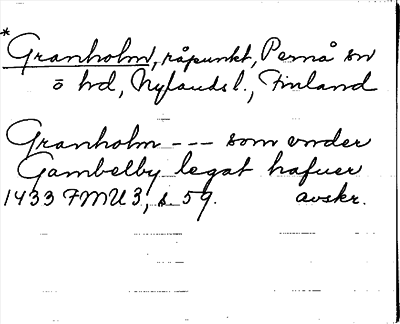 *Granholm, råpunkt, Pernå sn
ö hd, Nylands l., Finland
Granholm --- som vnder
Gambelby legat hafuer
1433 FMU 3, s. 59. avskr.